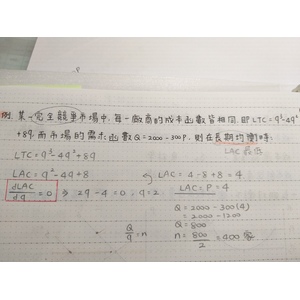 例. 某一完全競爭市場中, 每一廠商的成本函數皆相同, 即 LTC = q³-4q²
+8q, 而市場的需求函數 Q = 2000-300P, 則在長期均衡時:
LAC最低
LTC = q³-4q²+8q
LAC = q²-4q+8
LAC = 4-8+8 = 4
dLAC/dq = 0 ⇒ 2q-4=0, q=2
LAC = P = 4
Q = 2000-300(4)
= 2000-1200
Q = 800
Q/q = n
n = 800/2 = 400 家